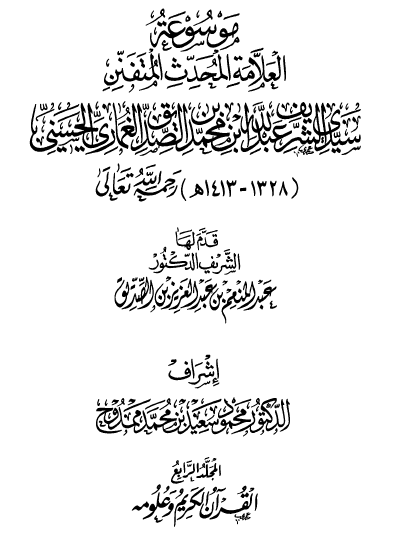 مَوْسُوعَةُ
العَلَّامَةِ المُحَدِّثِ المُتَفَنِّنِ
سَيِّدِي الشَّرِيفِ عَبْدِ اللَّهِ ابْنِ مُحَمَّدِ بْنِ الصِّدِّيقِ الغُمَارِيِّ الحَسَنِيِّ
(١٣٢٨-١٤١٣هـ) رَحِمَهُ اللَّهُ تَعَالَى
قَدَّمَ لَهَا
الشَّرِيفُ الدُّكْتُورُ
عَبْدُ المُنْعِمِ بْنُ عَبْدِ العَزِيزِ بْنِ الصِّدِّيقِ
إِشْرَافُ
الدُّكْتُورِ مَحْمُودِ سَعِيدِ بْنِ مُحَمَّدٍ مَمْدُوحٍ
المُجَلَّدُ الرَّابِعُ
القُرْآنُ الكَرِيمُ وَعُلُومُهُ